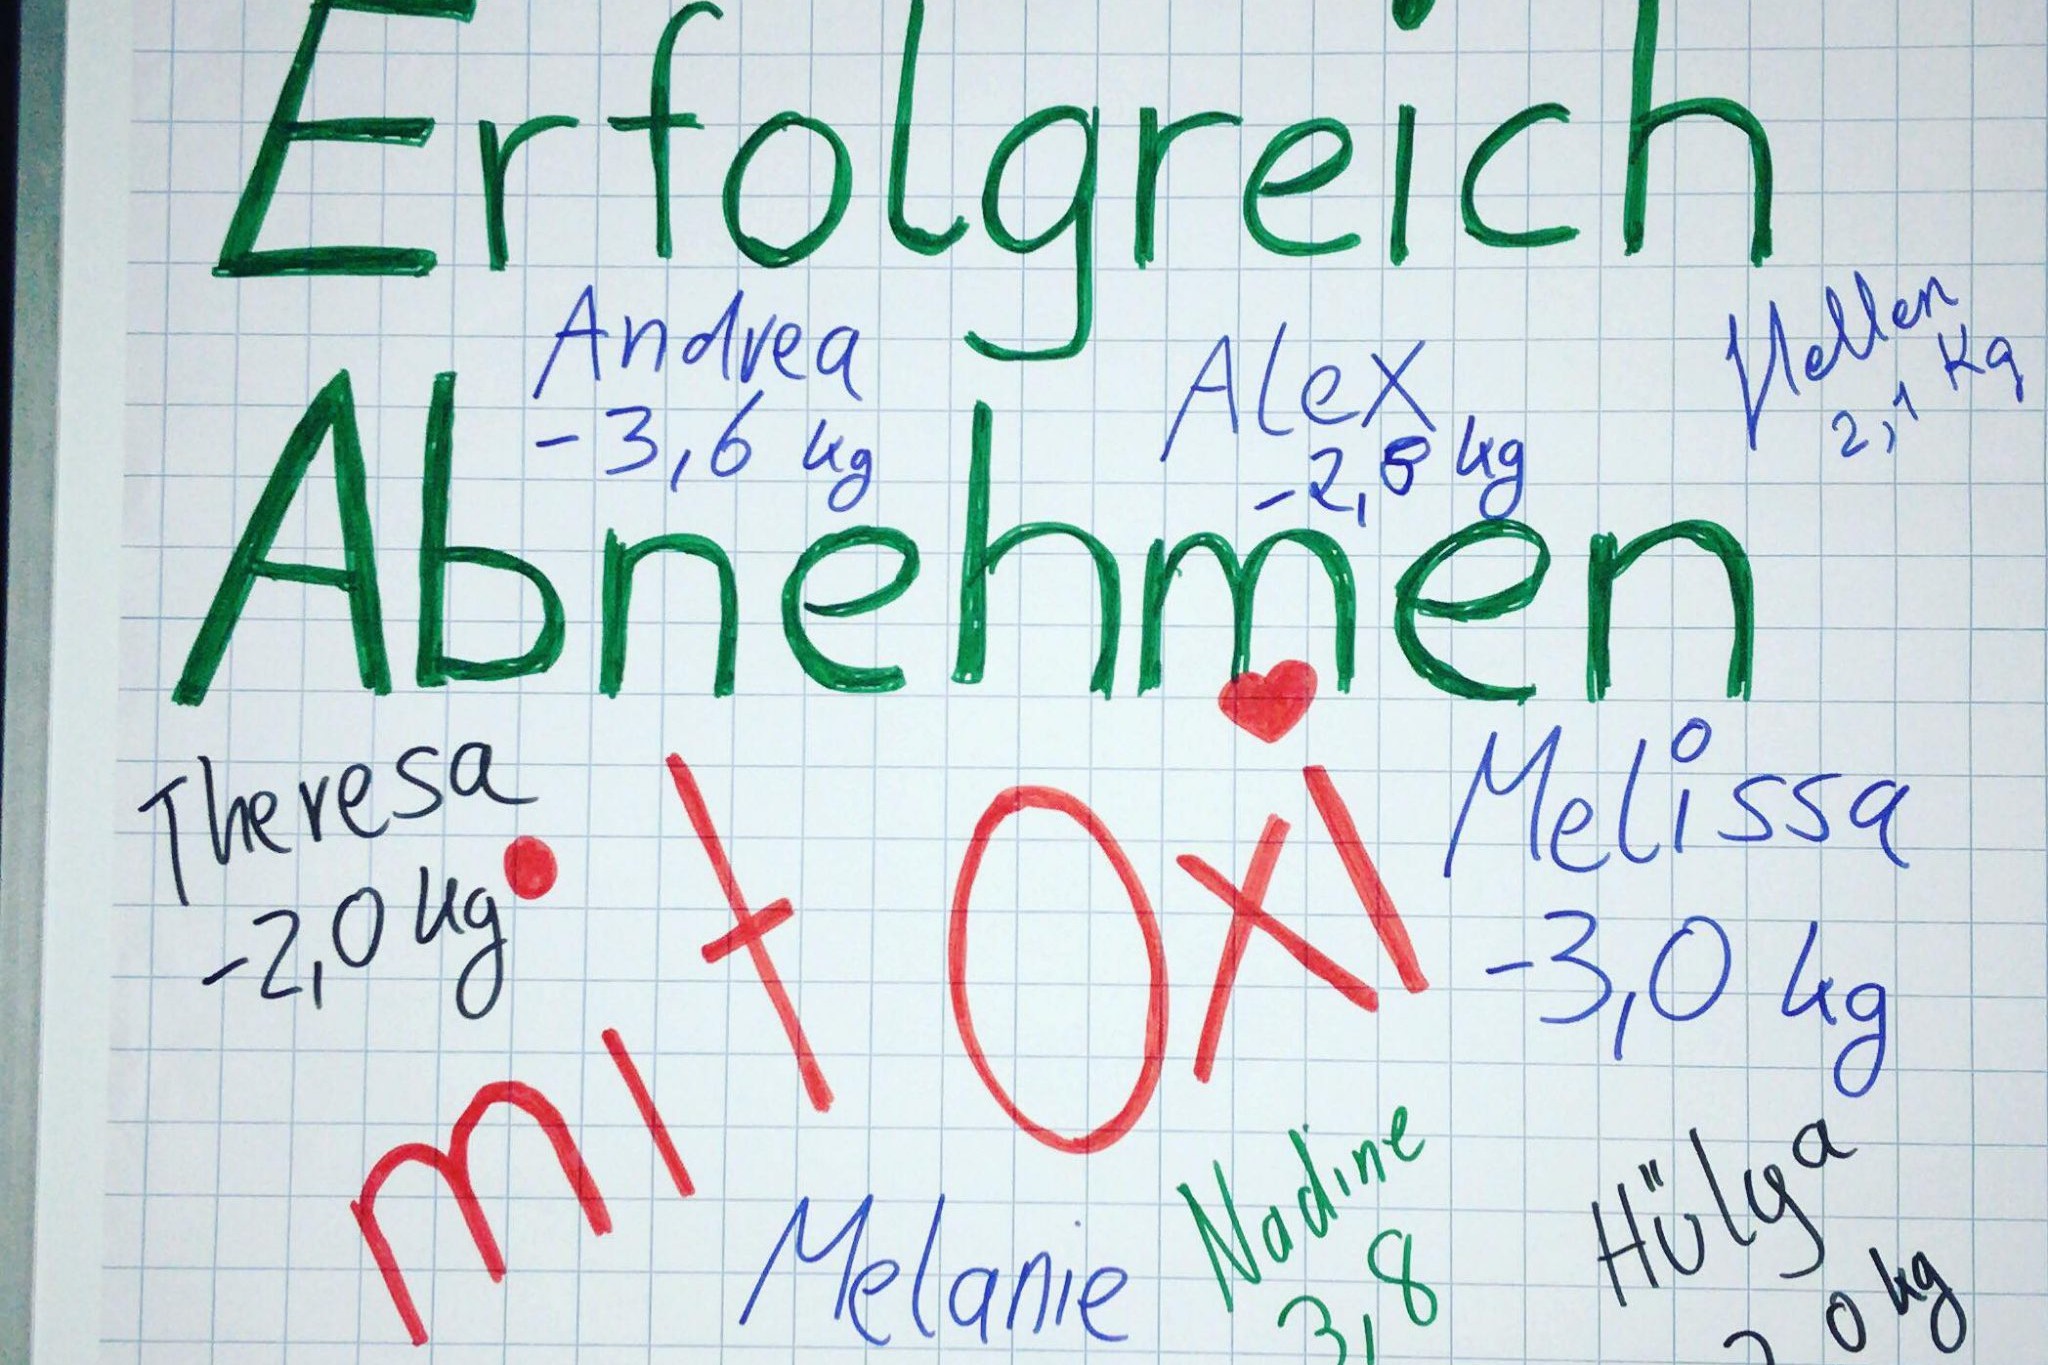 Erfolgreich
Andrea
-3,6 kg
Alex
kg
Hellen
2,1 kg
Abnehmen
Theresa
-2,0 kg
mit Oxi
Melissa
-3,0 kg
Melanie
Nadine
3,8
Hülya
0 kg